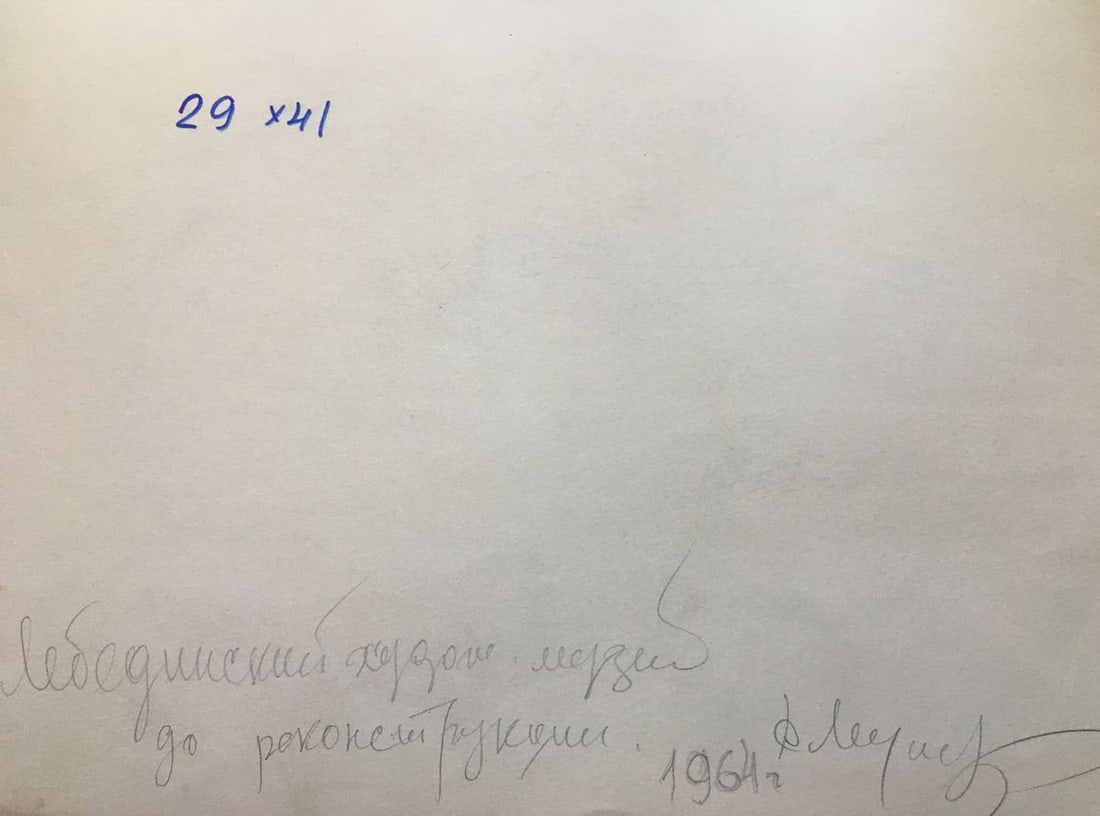 29 x 41
Лебединский худож. музей
до реконструкции.
1964 г